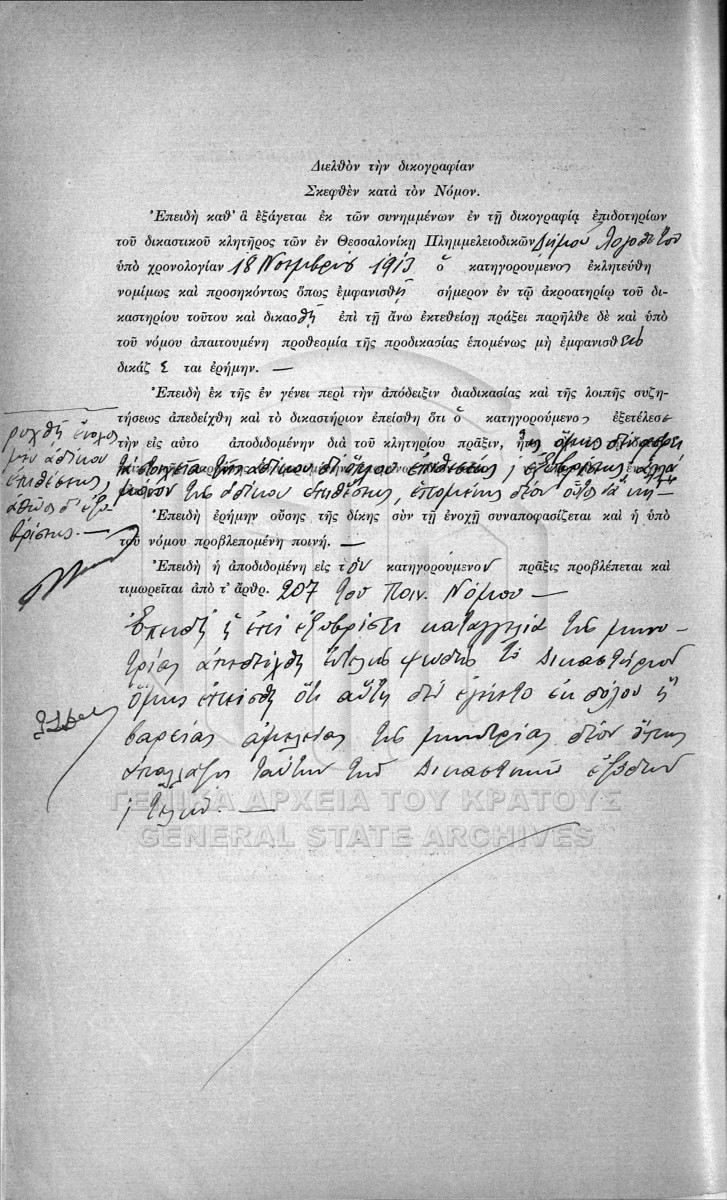 Διελθὸν τὴν δικογραφίαν
Σκεφθὲν κατὰ τὸν Νόμον.
Ἐπειδὴ καθ' ἃ ἐξάγεται ἐκ τῶν συνημμένων ἐν τῇ δικογραφίᾳ ἐπιδοτηρίων
τοῦ δικαστικοῦ κλητῆρος τῶν ἐν Θεσσαλονίκῃ Πλημμελειοδικῶν Δήμου Λογοθέτου
ὑπὸ χρονολογίαν 18 Νοεμβρίου 1913 ὁ κατηγορούμενος ἐκλητεύθη
νομίμως καὶ προσηκόντως ὅπως ἐμφανισθῇ σήμερον ἐν τῷ ἀκροατηρίῳ τοῦ δι-
καστηρίου τούτου καὶ δικασθῇ ἐπὶ τῇ ἄνω ἐκτεθείσῃ πράξει παρῆλθε δὲ καὶ ὑπὸ
τοῦ νόμου ἀπαιτουμένη προθεσμία τῆς προδικασίας ἑπομένως μὴ ἐμφανισθεὶς
δικάζεται ἐρήμην. —
Ἐπειδὴ ἐκ τῆς ἐν γένει περὶ τὴν ἀπόδειξιν διαδικασίας καὶ τῆς λοιπῆς συζη-
τήσεως ἀπεδείχθη καὶ τὸ δικαστήριον ἐπείσθη ὅτι ὁ κατηγορούμενος ἐξετέλεσε
τὴν εἰς αὐτὸ ἀποδιδομένην διὰ τοῦ κλητηρίου πρᾶξιν, ὅμως
στοιχεῖα τῆς ἀδίκου ἐπιθέσεως, ἐξυβρίσεως ἀλλὰ
μόνον τῆς ἀδίκου ἐπιθέσεως, ἑπομένως δέον
Ἐπειδὴ ἐρήμην οὔσης τῆς δίκης σὺν τῇ ἐνοχῇ συναποφασίζεται καὶ ἡ ὑπὸ
τοῦ νόμου προβλεπομένη ποινή. —
Ἐπειδὴ ἡ ἀποδιδομένη εἰς τὸν κατηγορούμενον πρᾶξις προβλέπεται καὶ
τιμωρεῖται ἀπὸ τ' ἄρθρ. 207 τοῦ Ποιν. Νόμου —
Ἐπειδὴ ἡ ἐπὶ ἐξυβρίσει καταγγελία τῆς μηνυ-
τρίας ἀπεδείχθη ἐντελῶς ψευδὴς τὸ Δικαστήριον
ὅμως ἐπείσθη ὅτι αὕτη δὲν ἐγένετο ἐκ δόλου ἢ
βαρείας ἀμελείας τῆς μηνυτρίας δέον ὅπως
ἀπαλλάξῃ ταύτην τῶν Δικαστικῶν ἐξόδων
καὶ τελῶν. —
ἔνοχος
μὲν ἀδίκου
ἐπιθέσεως,
ἀθῶος δ' ἐξυ-
βρίσεως. —
ΓΕΝΙΚΑ ΑΡΧΕΙΑ ΤΟΥ ΚΡΑΤΟΥΣ
GENERAL STATE ARCHIVES